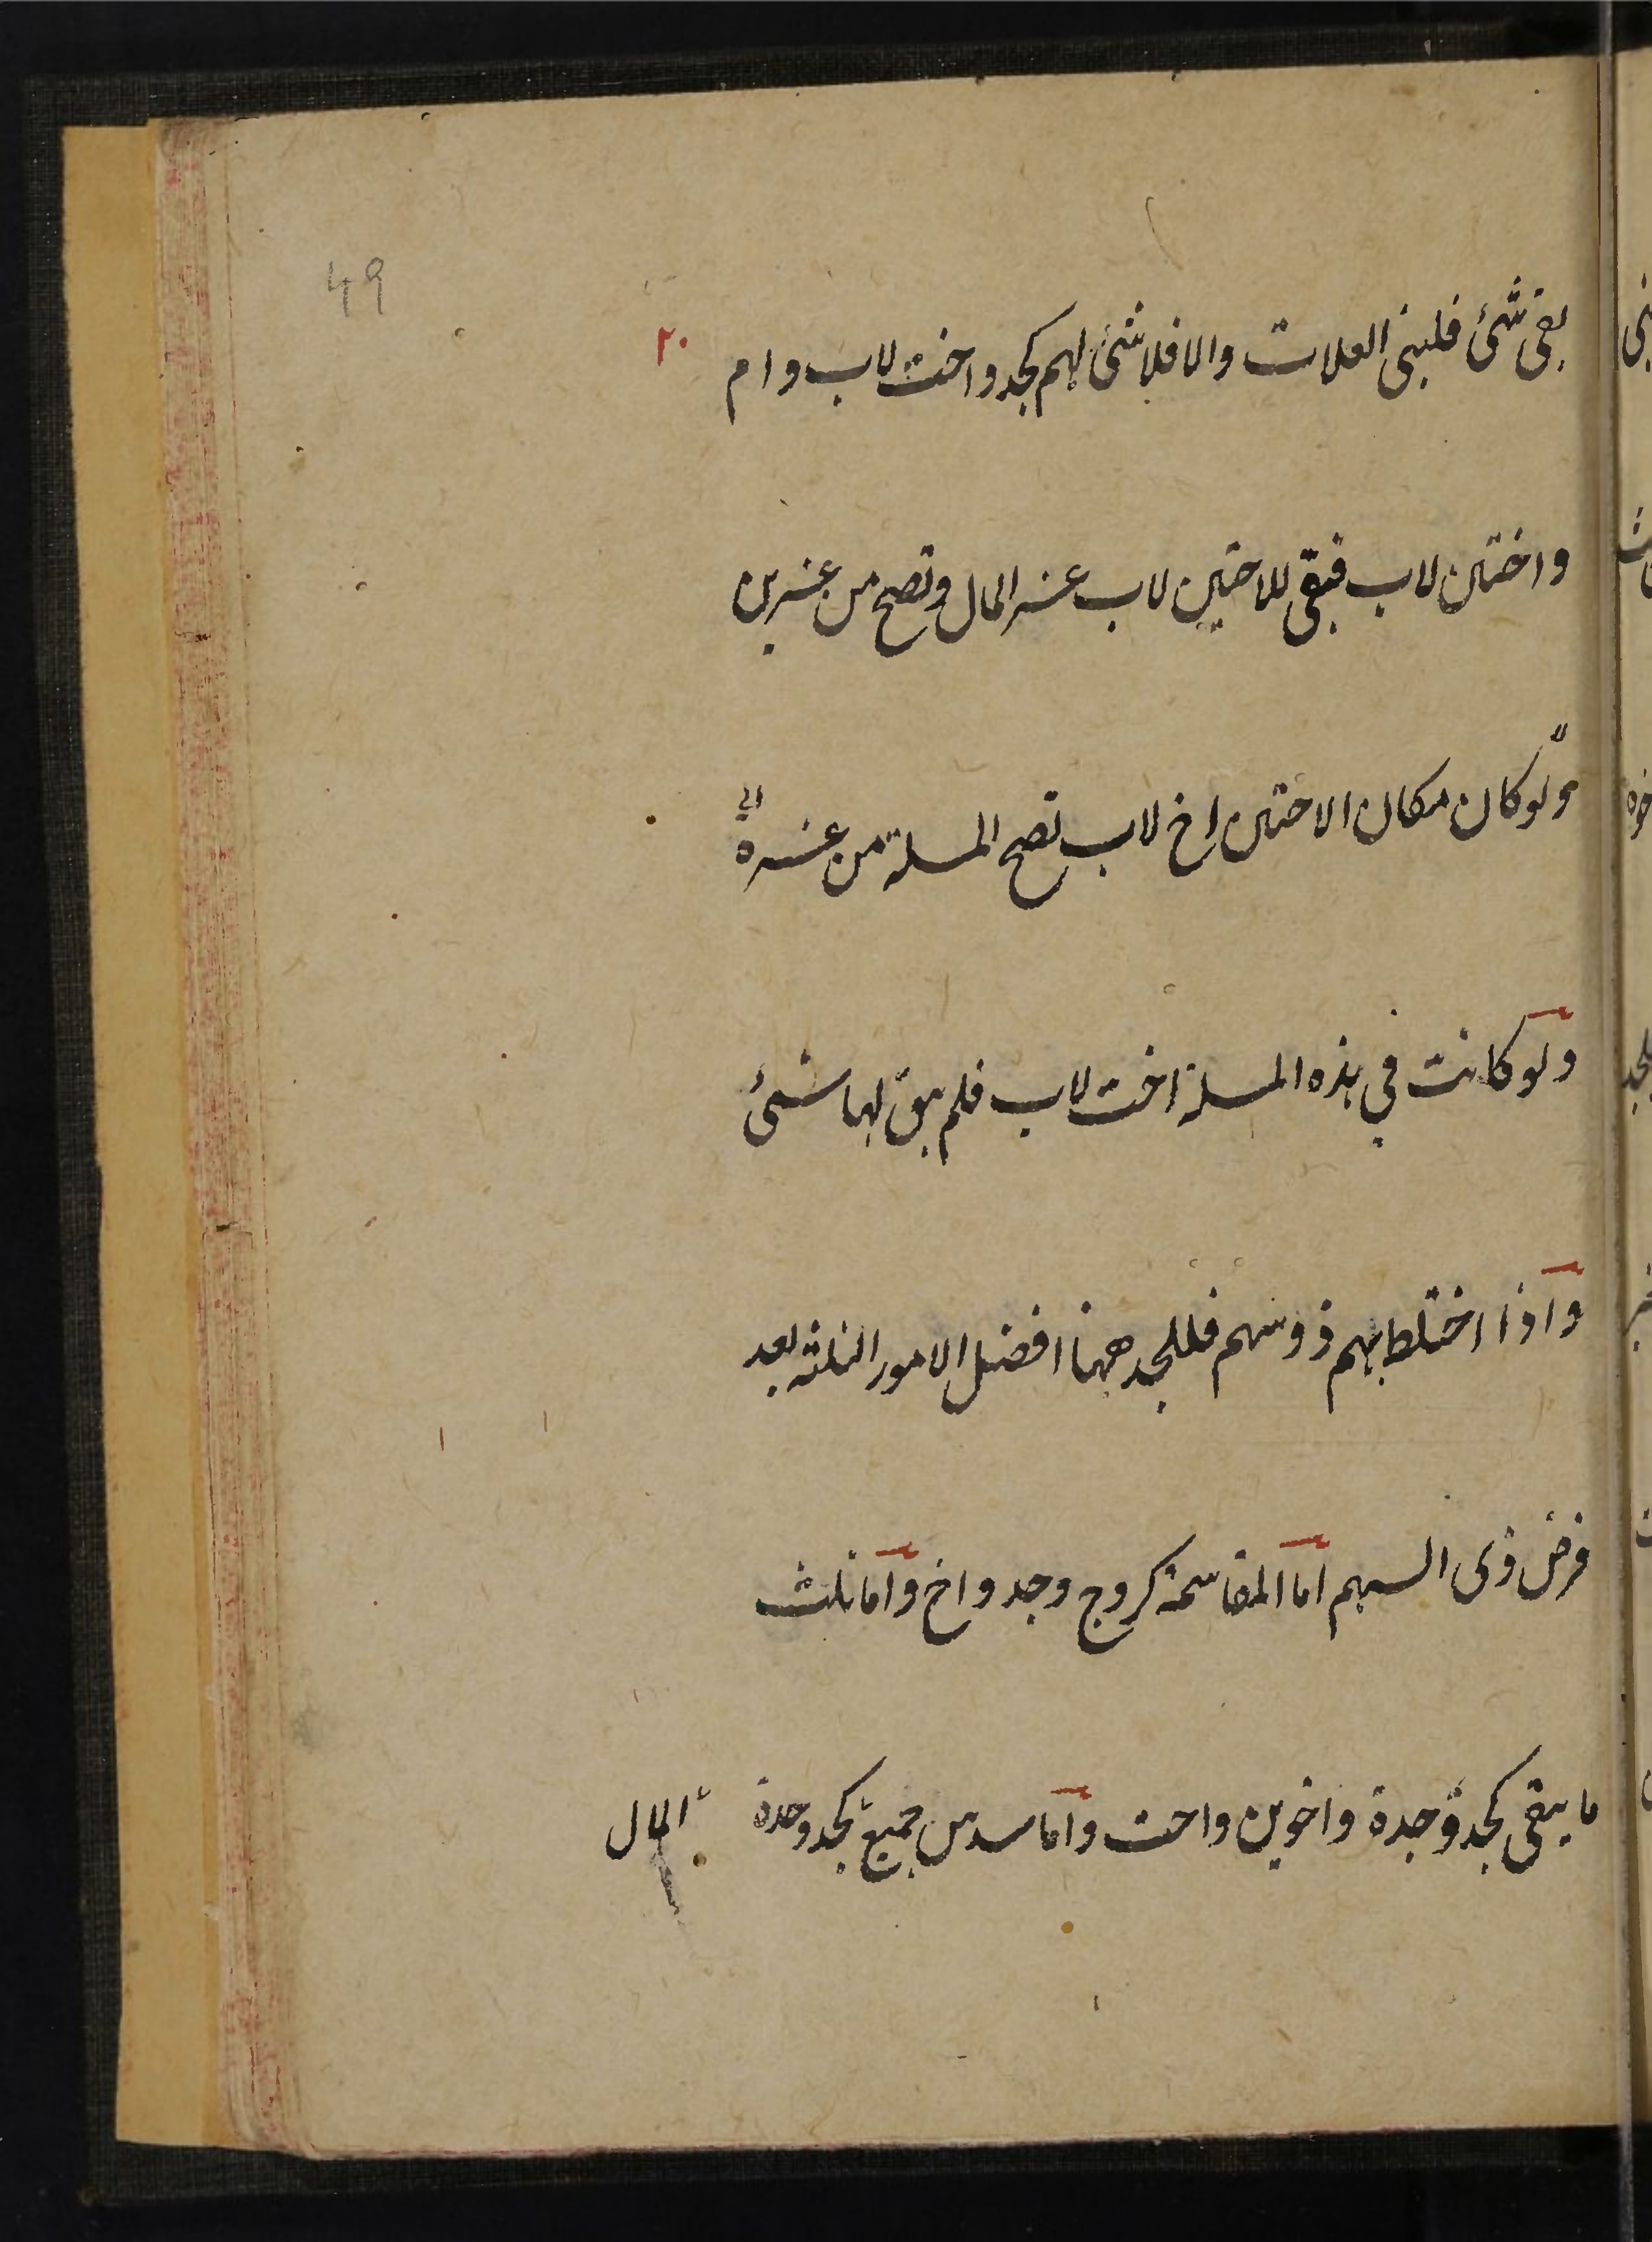 49
٢٠
بقى شئ فلبنى العلات والا فلا شئ لهم كجد واخت لاب وام
واختين لاب فبقى للاختين لاب عشر المال وتصح من عشرين
ولو كان مكان الاختين اخ لاب تصح المسلة من عشرة
ولو كانت في هذه المسلة اخت لاب فلم يبق لها شئ
واذا اختلط بهم ذو سهم فللجد ههنا افضل الامور الثلثة بعد
فرض ذى السهم اما المقاسمة كزوج وجد واخ واما ثلث
ما يبقى كجد وجدة واخوين واخت واما سدس جميع كجد وجدة المال